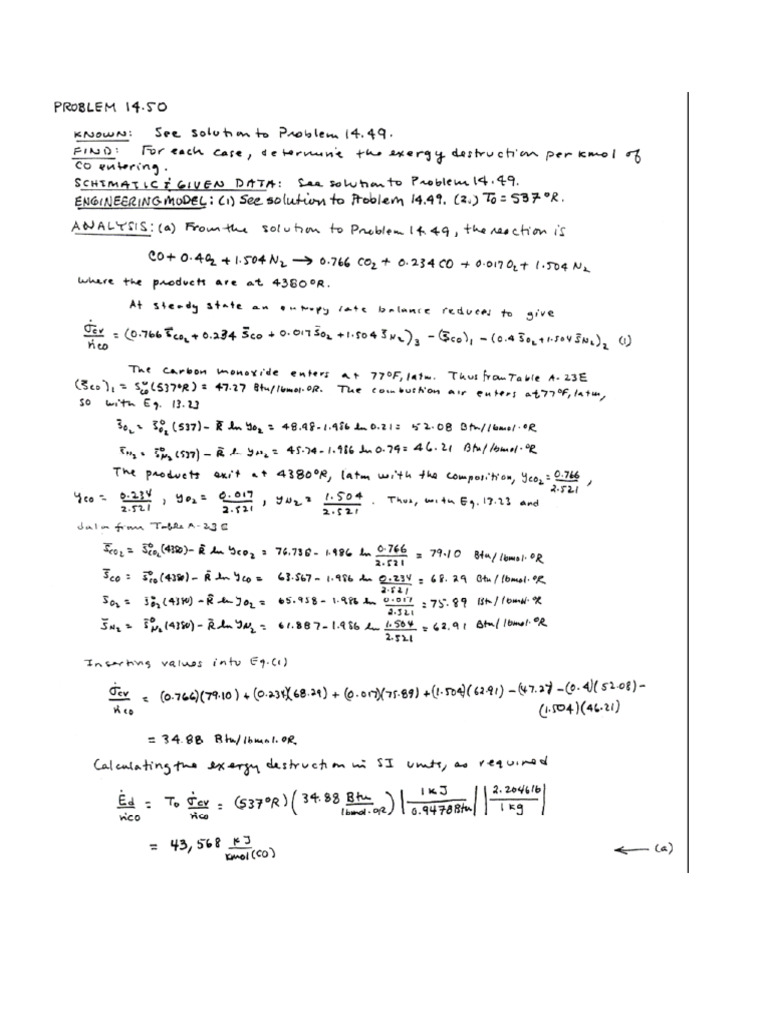 PROBLEM 14.50
KNOWN: See solution to Problem 14.49.
FIND: For each case, determine the exergy destruction per kmol of
CO entering.
SCHEMATIC & GIVEN DATA: See solution to Problem 14.49.
ENGINEERING MODEL: (1) See solution to Problem 14.49. (2.) T₀ = 537°R.
ANALYSIS: (a) From the solution to Problem 14.49, the reaction is
CO + 0.4O₂ + 1.504 N₂ → 0.766 CO₂ + 0.234 CO + 0.017 O₂ + 1.504 N₂
where the products are at 4380°R.
At steady state an entropy rate balance reduces to give
σ̇cv/ṅco = (0.766 s̄CO₂ + 0.234 s̄CO + 0.017 s̄O₂ + 1.504 s̄N₂)₃ − (s̄CO)₁ − (0.4 s̄O₂ + 1.504 s̄N₂)₂ (1)
The carbon monoxide enters at 77°F, 1atm. Thus from Table A-23E
(s̄CO)₁ = s̄°CO(537°R) = 47.27 Btu/lbmol·°R. The combustion air enters at 77°F, 1atm,
so with Eq. 13.23
s̄O₂ = s̄°O₂(537) − R̄ ln yO₂ = 48.98 − 1.986 ln 0.21 = 52.08 Btu/lbmol·°R
s̄N₂ = s̄°N₂(537) − R̄ ln yN₂ = 45.74 − 1.986 ln 0.79 = 46.21 Btu/lbmol·°R
The products exit at 4380°R, 1atm with the composition, yCO₂ = 0.766/2.521,
yCO = 0.234/2.521, yO₂ = 0.017/2.521, yN₂ = 1.504/2.521. Thus, with Eq. 13.23 and
data from Table A-23E
s̄CO₂ = s̄°CO₂(4380) − R̄ ln yCO₂ = 76.738 − 1.986 ln 0.766/2.521 = 79.10 Btu/lbmol·°R
s̄CO = s̄°CO(4380) − R̄ ln yCO = 63.567 − 1.986 ln 0.234/2.521 = 68.29 Btu/lbmol·°R
s̄O₂ = s̄°O₂(4380) − R̄ ln yO₂ = 65.938 − 1.986 ln 0.017/2.521 = 75.89 Btu/lbmol·°R
s̄N₂ = s̄°N₂(4380) − R̄ ln yN₂ = 61.887 − 1.986 ln 1.504/2.521 = 62.91 Btu/lbmol·°R
Inserting values into Eq.(1)
σ̇cv/ṅco = (0.766)(79.10) + (0.234)(68.29) + (0.017)(75.89) + (1.504)(62.91) − (47.27) − (0.4)(52.08) −
(1.504)(46.21)
= 34.88 Btu/lbmol·°R.
Calculating the exergy destruction in SI units, as required
Ėd/ṅco = T₀ σ̇cv/ṅco = (537°R)(34.88 Btu/lbmol·°R)|1 kJ/0.9478 Btu||2.2046 lb/1 kg|
= 43,568 kJ/kmol(CO) ← (a)